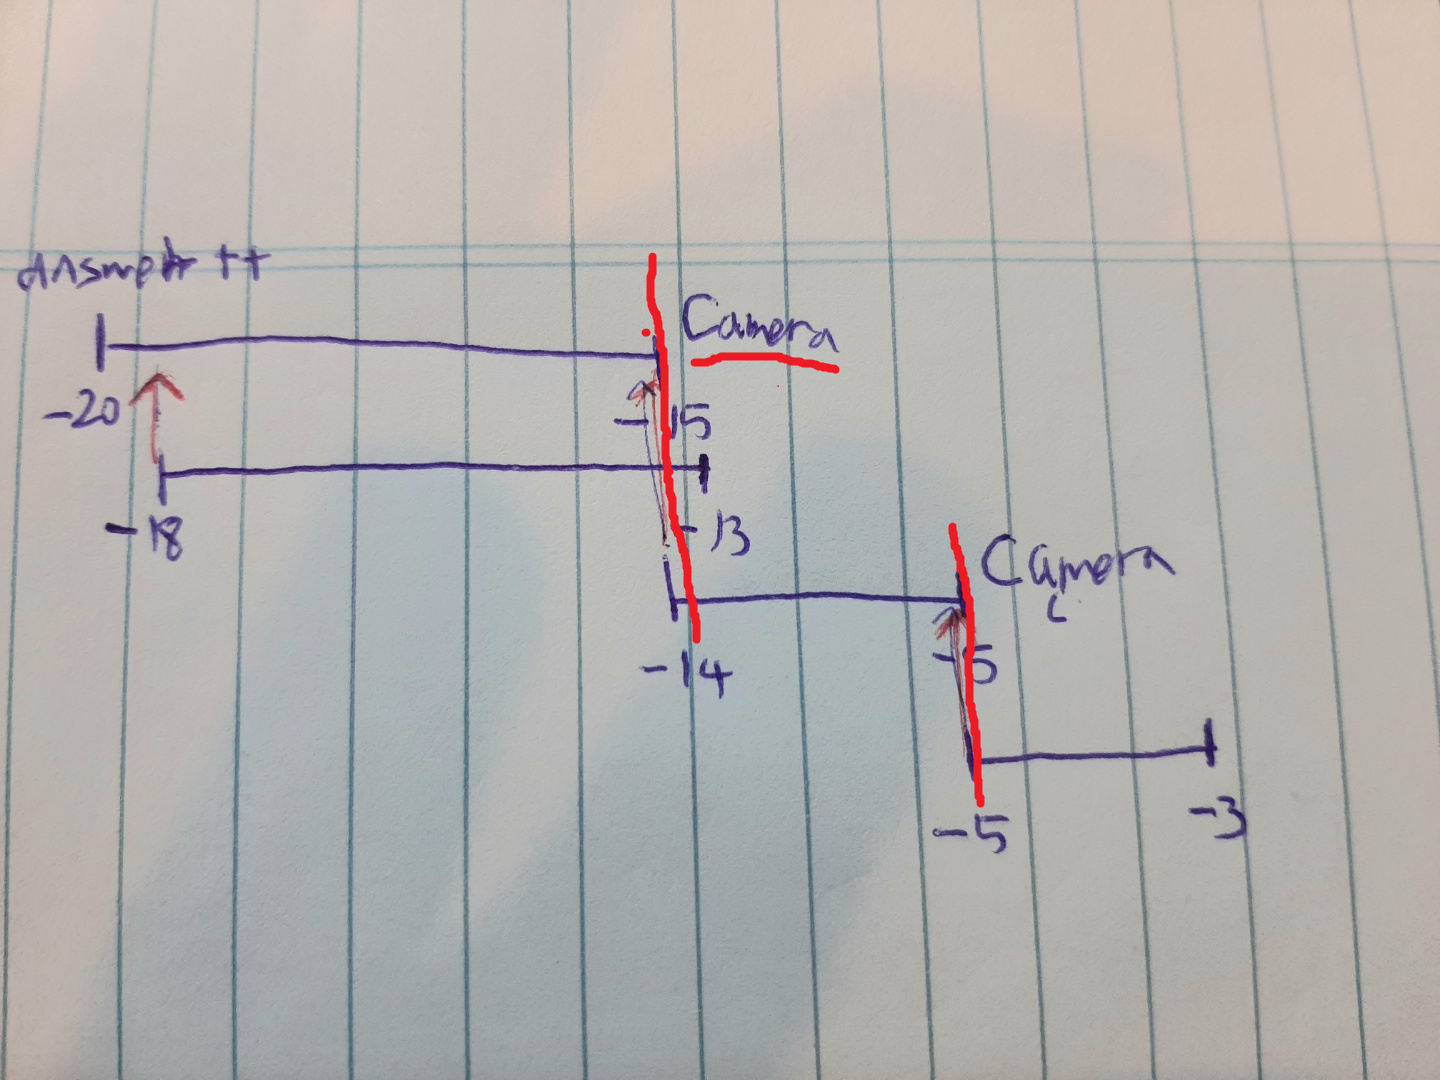 Answer ++
Camera
-20
-15
-18
-13
Camera
-14
-5
-5
-3